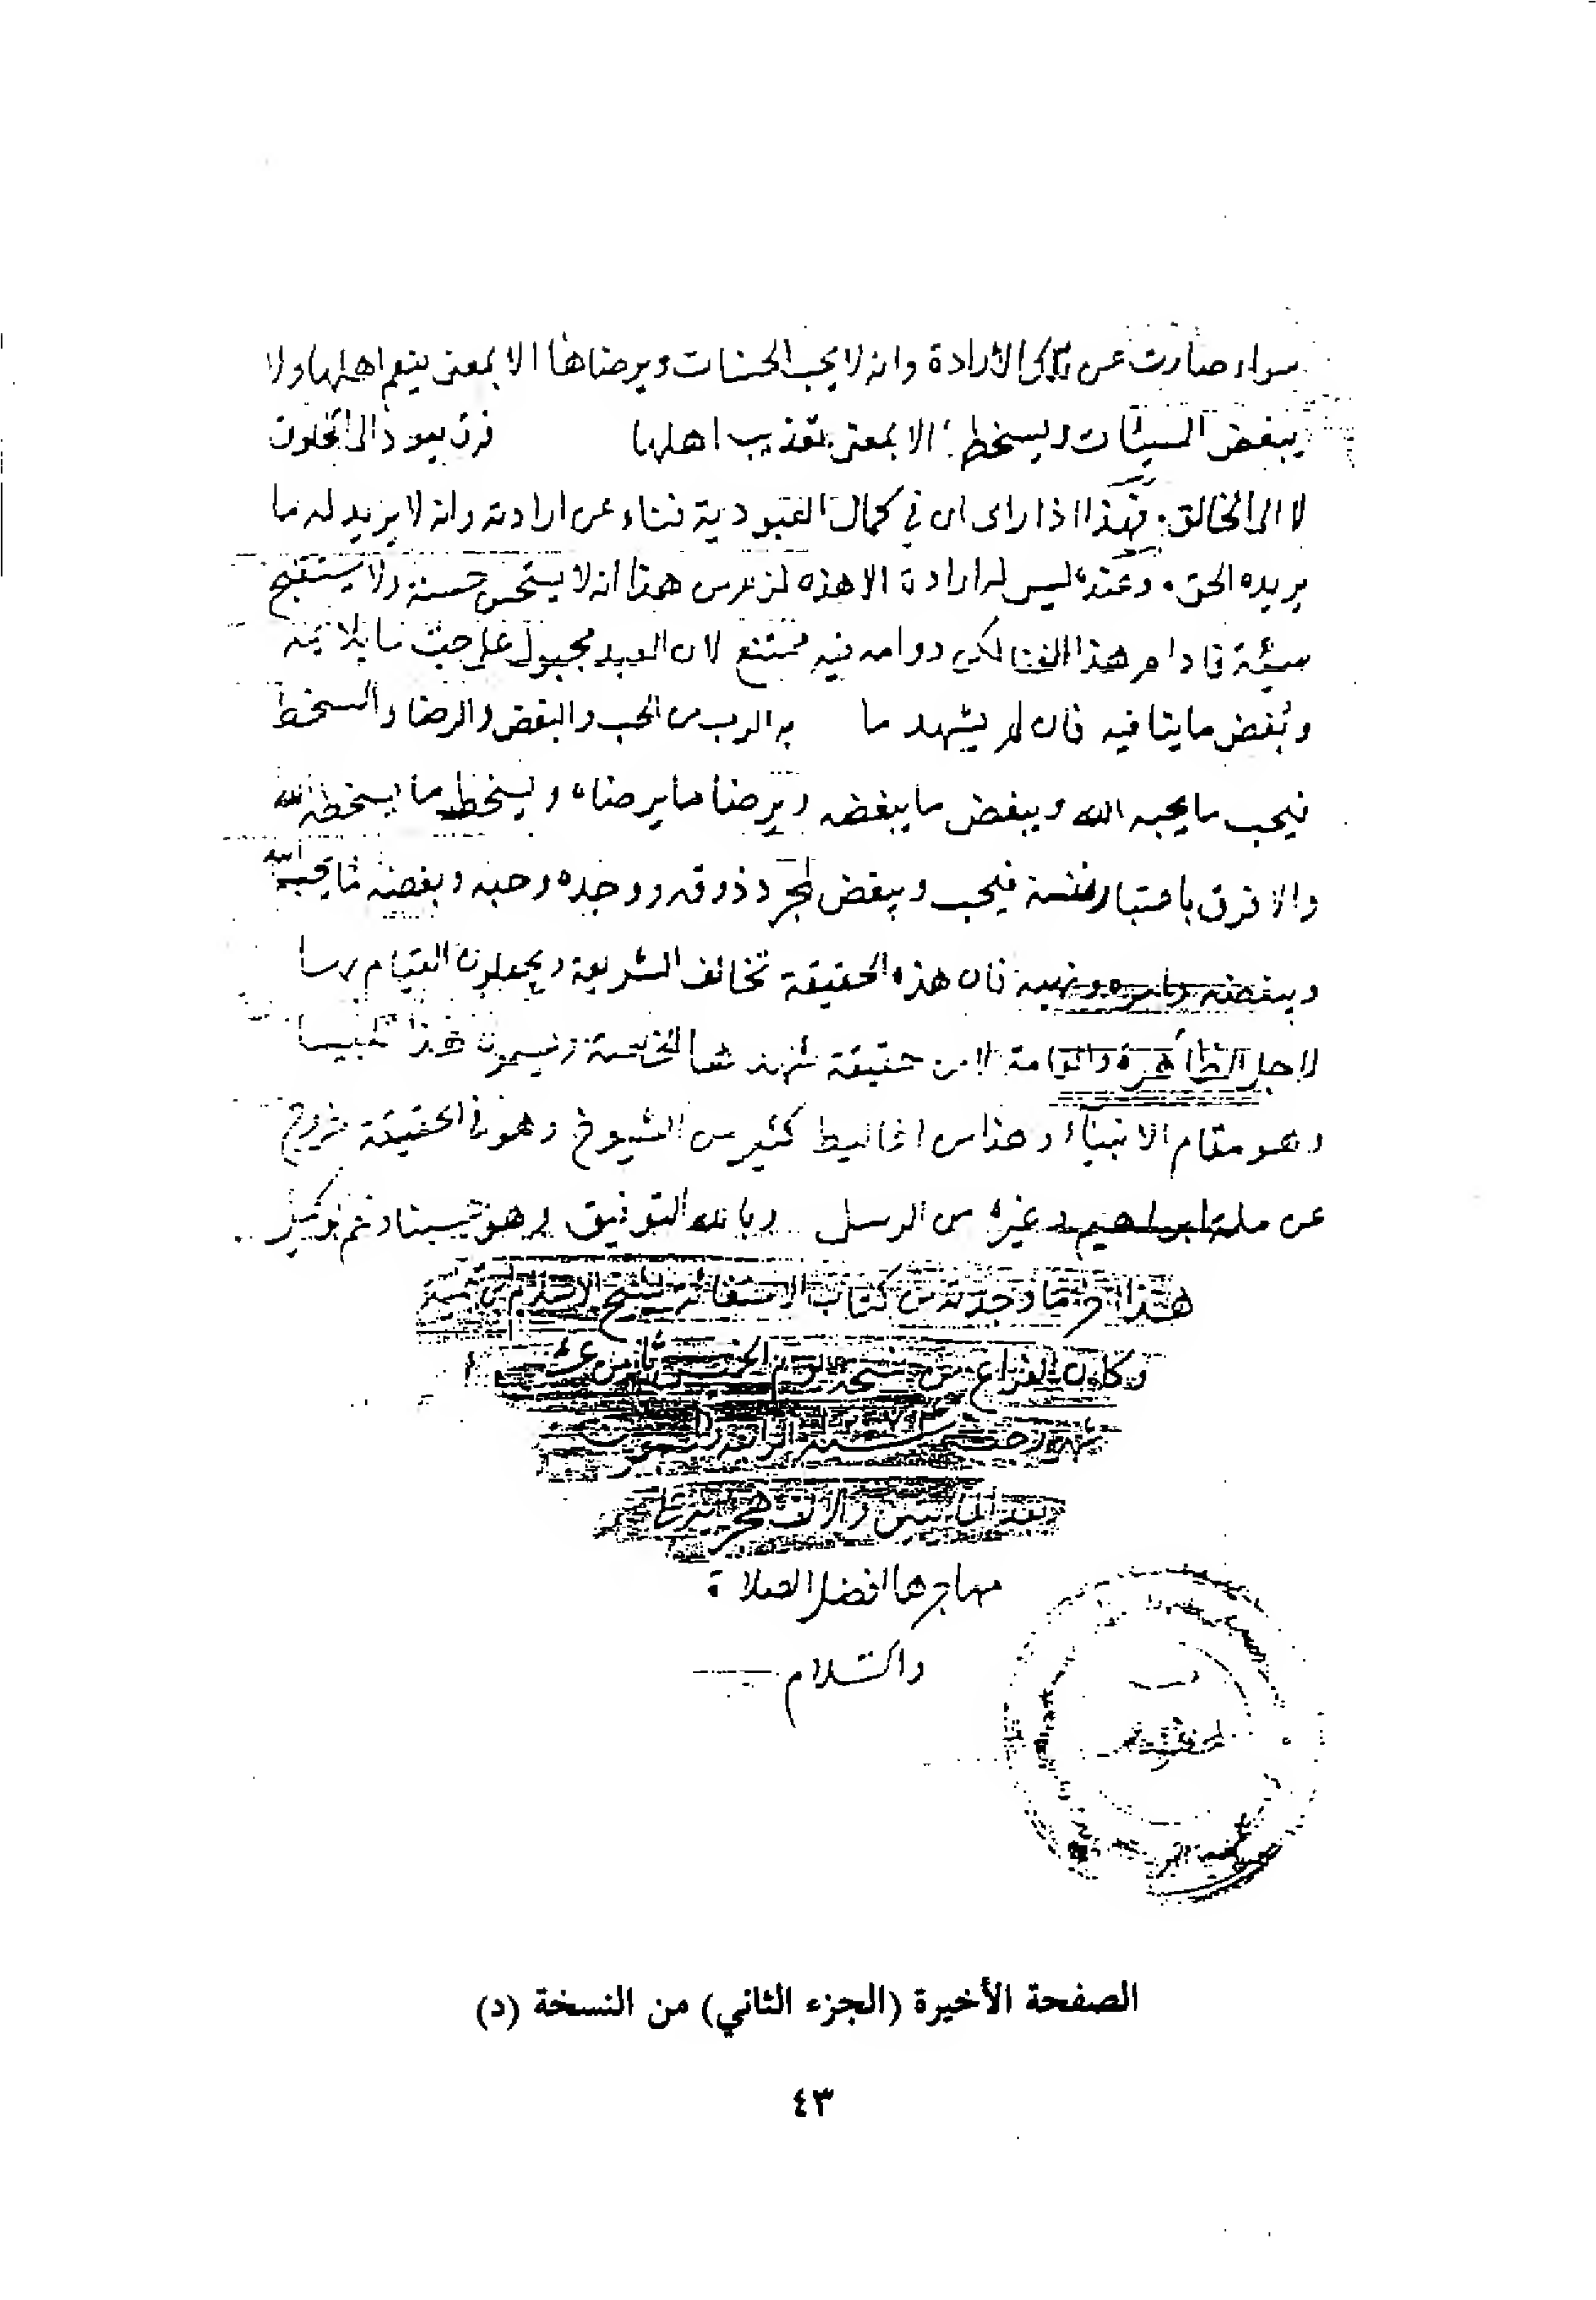 سواء صارت عن تلك الارادة وانه لا يحب الحسنات ويرضاها الا بمعنى ينعم اهلها ولا
يبغض السيئات ويسخطها الا بمعنى تعذيب اهلها فرق يعود الى المخلوق
لا الى الخالق فهذا اذا راى ان في كمال العبودية فناء عن ارادته وانه لا يريد له ما
يريده الحق وعنده ليس له ارادة الا هذه لزم من هذا انه لا يستحسن حسنة ولا يستقبح
سيئة ما دام هذا الفنا لكن دوامه فيه ممتنع لان العبد مجبول على حب ما يلائمه
وبغض ما ينافيه فان لم يشهد ما به الرب من الحب والبغض والرضا والسخط
فيحب ما يحبه الله ويبغض ما يبغضه ويرضا ما يرضاه ويسخط ما يسخطه الله
والا فرق باعتبار نفسه فيحب ويبغض لمجرد ذوقه ووجده وحبه وبغضه لما يحبه الله
ويبغضه وامره ونهيه فان هذه الحقيقة تخالف الشريعة ويجعلون القيام بها
لاجل الظاهرة والعامة لا من حقيقة شهدها الخاصة ويسمون هذا تلبيسا
وهو مقام الانبياء وهذا من اغاليط كثير من الشيوخ وهو في الحقيقة خروج
عن ملة ابراهيم وغيره من الرسل وبالله التوفيق وهو حسبنا ونعم الوكيل
هذا اخر ما وجدته من كتاب الاستغاثة لشيخ الاسلام ابن تيمية
وكان الفراغ من نسخه يوم الخميس ثامن عشر
شهر سنة
بعد المائتين والالف هجرية على
مهاجرها افضل الصلاة
والسلام
الصفحة الأخيرة (الجزء الثاني) من النسخة (د)
٤٣